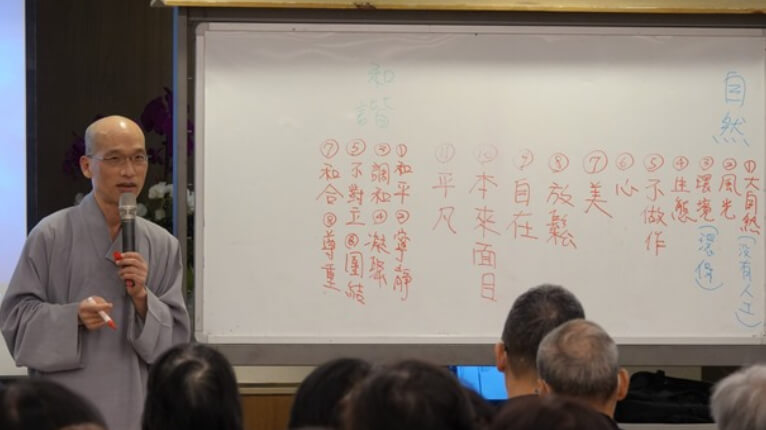 自然
①大自然(沒有人工)
②風光
③環境(環保)
④生態
⑤不做作
⑥心
⑦美
⑧放鬆
⑨自在
⑩本來面目
⑪平凡
和諧
①和平②寧靜
③調和④凝聚
⑤不對立⑥團結
⑦和合⑧尊重